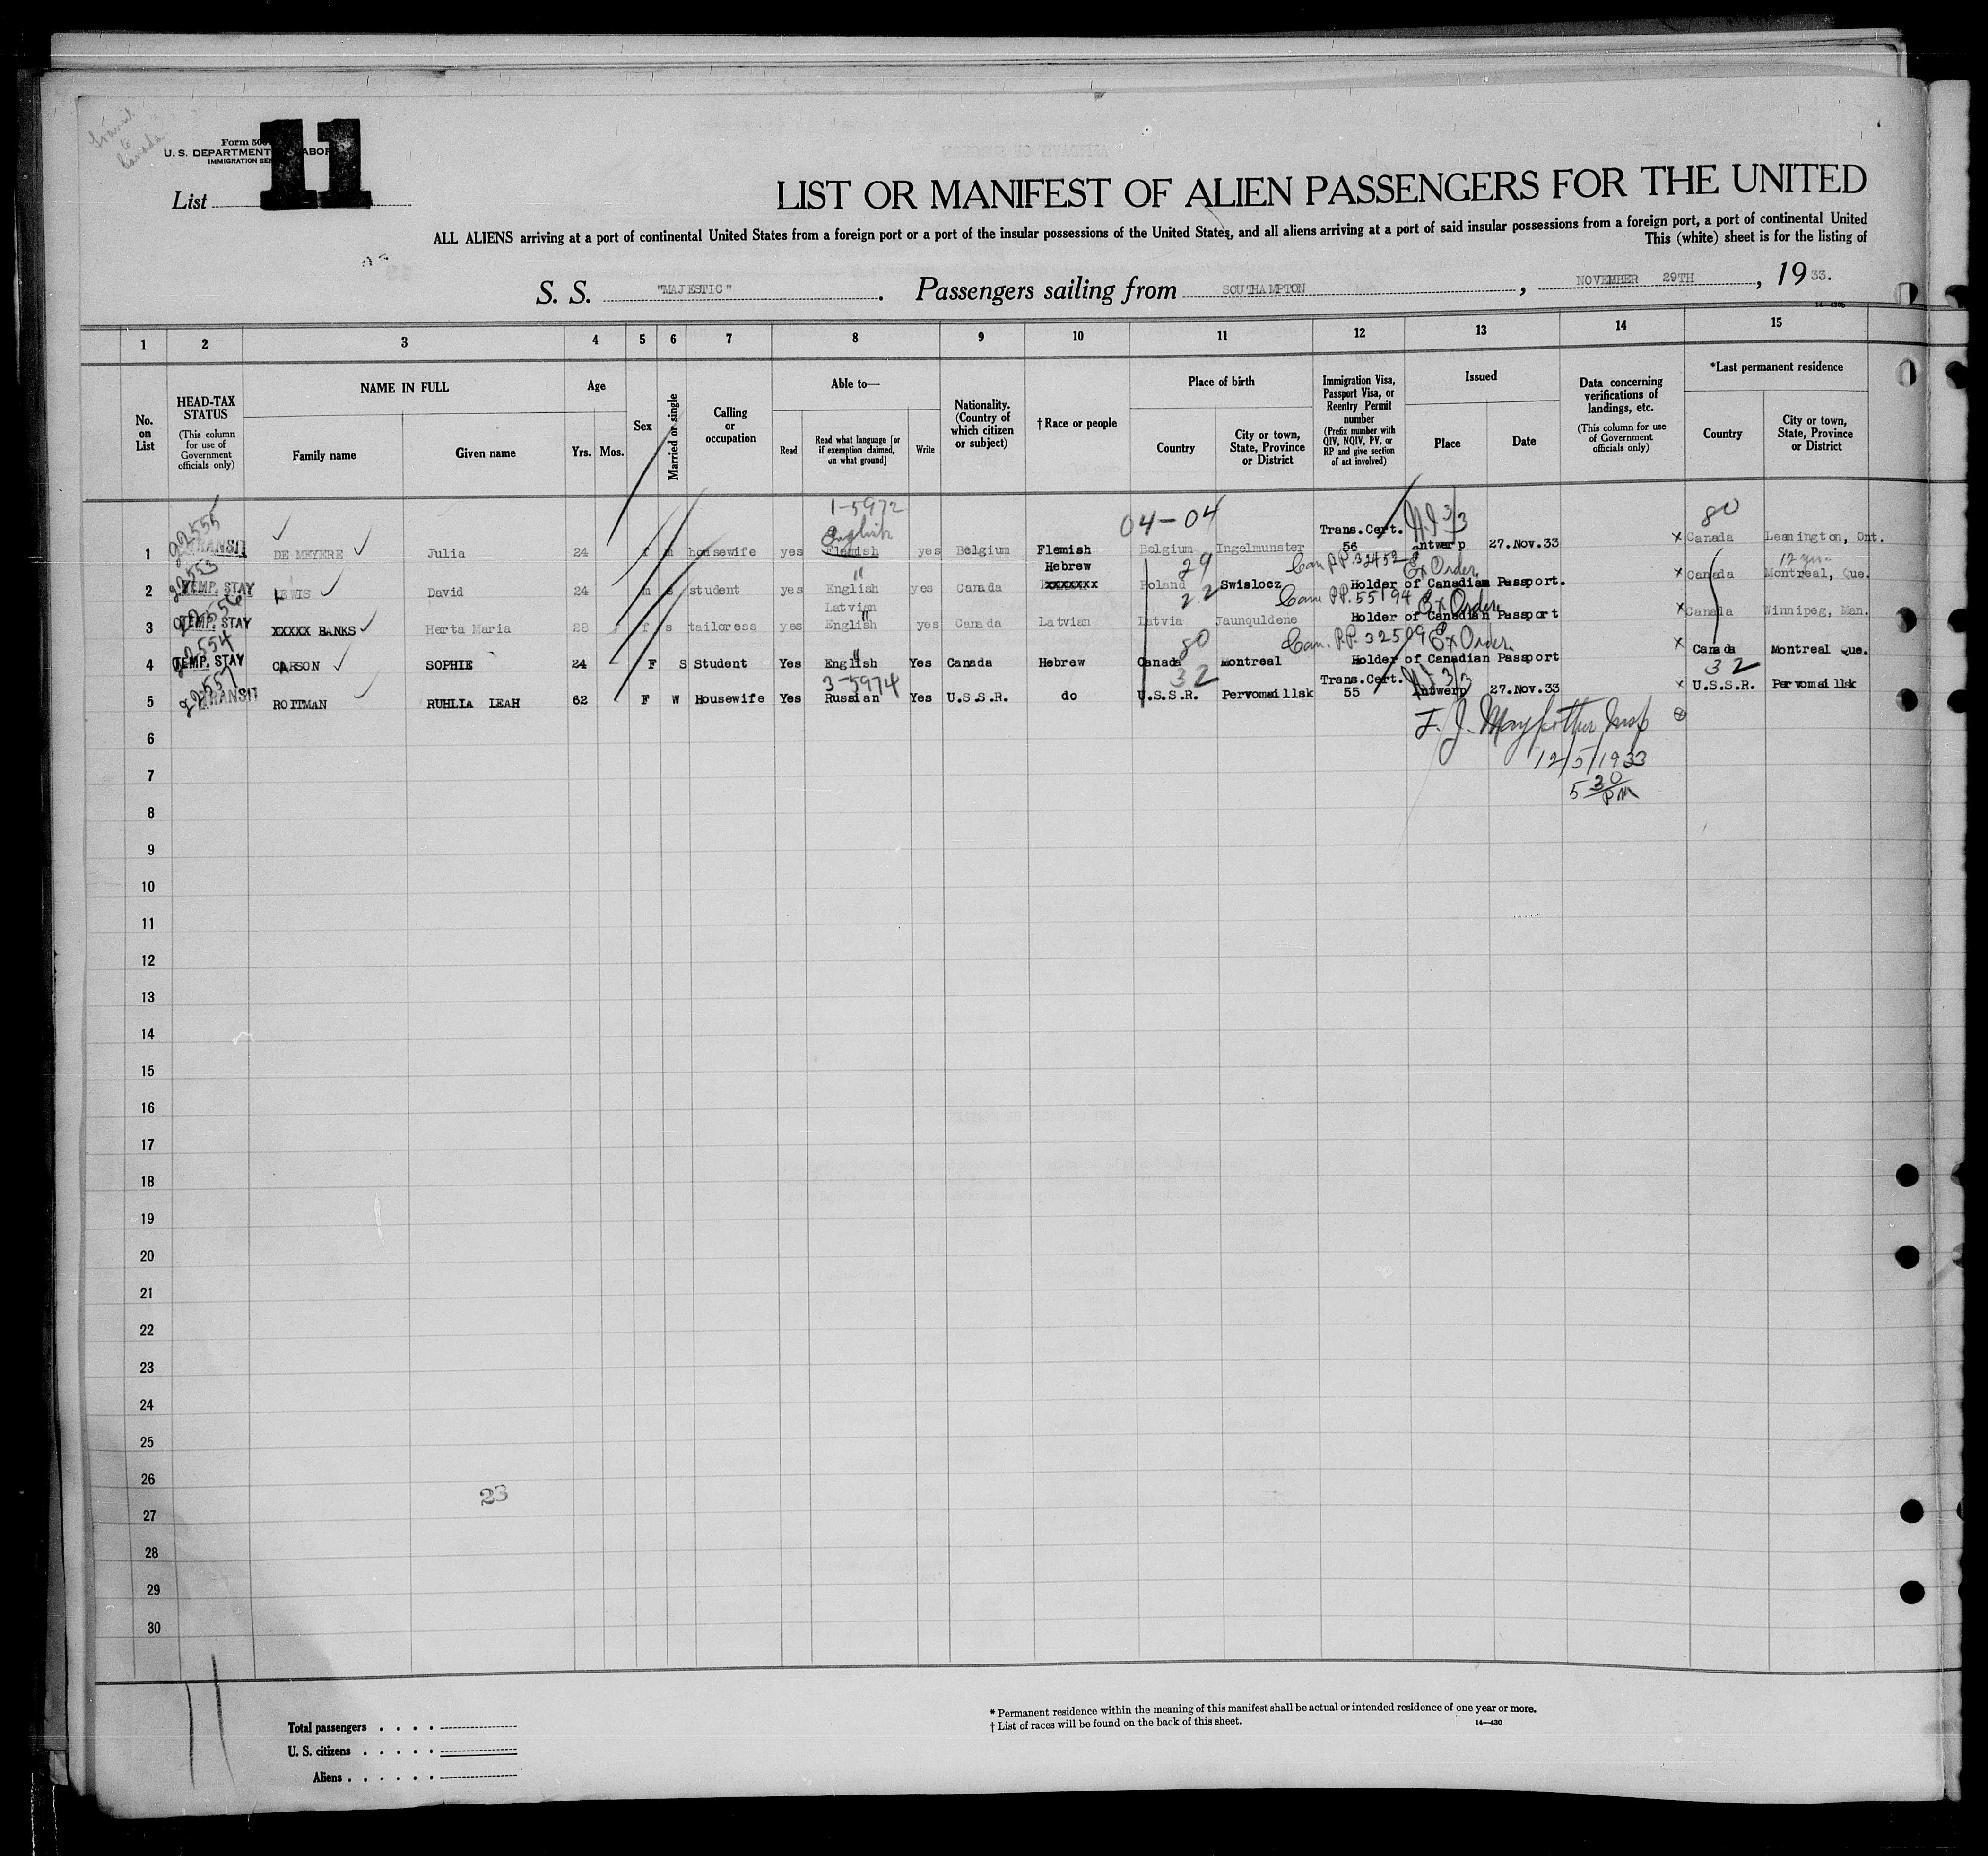 Transit
to
Canada
Form 500
U. S. DEPARTMENT LABOR
IMMIGRATION SER
List 11
LIST OR MANIFEST OF ALIEN PASSENGERS FOR THE UNITED
ALL ALIENS arriving at a port of continental United States from a foreign port or a port of the insular possessions of the United States, and all aliens arriving at a port of said insular possessions from a foreign port, a port of continental United
This (white) sheet is for the listing of
S. S. "MAJESTIC". Passengers sailing from SOUTHAMPTON, NOVEMBER 29TH, 1933.
14—430b
1 2 3 4 5 6 7 8 9 10 11 12 13 14 15
No. on List
HEAD-TAX STATUS
(This column for use of Government officials only)
NAME IN FULL
Family name Given name
Age
Yrs. Mos.
Sex
Married or single
Calling or occupation
Able to—
Read
Read what language [or if exemption claimed, on what ground]
Write
Nationality. (Country of which citizen or subject)
†Race or people
Place of birth
Country
City or town, State, Province or District
Immigration Visa, Passport Visa, or Reentry Permit number
(Prefix number with QIV, NQIV, PV, or RP and give section of act involved)
Issued
Place Date
Data concerning verifications of landings, etc.
(This column for use of Government officials only)
*Last permanent residence
Country
City or town, State, Province or District
1-5972 04-04 80
22555 English Trans. Cert. N.I 3/3
1 TRANSIT DE MEYERE Julia 24 f m housewife yes Flemish yes Belgium Flemish Belgium Ingelmunster 56 Antwerp 27.Nov.33 x Canada Leamington, Ont.
22553 " Hebrew 29 Can P.P. 32452 Ex Order 12 yrs
2 TEMP. STAY LEWIS David 24 m s student yes English yes Canada xxxxxxx Poland Swislocz Holder of Canadian Passport. x Canada Montreal, Que.
22556 Latvian 22 Can PP. 55194 Ex Order
3 TEMP. STAY XXXXX BANKS Herta Maria 28 f s tailoress yes English " yes Canada Latvian Latvia Jaunquldene Holder of Canadian Passport x Canada Winnipeg, Man.
22554 " 80 Can. P.P. 32509 Ex Order
4 TEMP. STAY CARSON SOPHIE 24 F S Student Yes English Yes Canada Hebrew Canada Montreal Holder of Canadian Passport x Canada Montreal Que.
22557 3-5974 32 Trans. Cert. N.I 3/3 32
5 TRANSIT ROITMAN RUHLIA LEAH 62 F W Housewife Yes Russian Yes U.S.S.R. do U.S.S.R. Pervomaillsk 55 Antwerp 27.Nov.33 x U.S.S.R. Pervomaillsk
6
7 12/5/1933
5 30 PM
8
9
10
11
12
13
14
15
16
17
18
19
20
21
22
23
24
25
26
23
27
28
29
30
11
Total passengers . . . .
U. S. citizens . . . . .
Aliens . . . . . .
* Permanent residence within the meaning of this manifest shall be actual or intended residence of one year or more.
† List of races will be found on the back of this sheet. 14—430